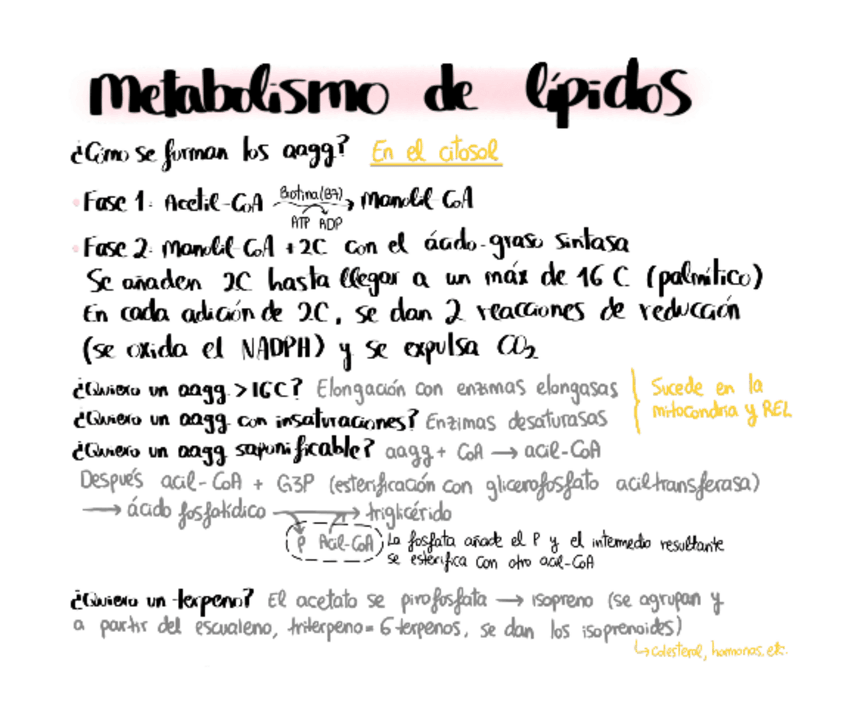 Metabolismo de lípidos
¿Cómo se forman los aagg? En el citosol
• Fase 1: Acetil-CoA Biotina(B7) ATP ADP → Manolil CoA
• Fase 2: Manolil CoA + 2C con el ácido-graso sintasa
Se añaden 2C hasta llegar a un máx de 16 C (palmítico)
En cada adición de 2C, se dan 2 reacciones de reducción
(se oxida el NADPH) y se expulsa CO₂
¿Quiero un aagg >16C? Elongación con enzimas elongasas
¿Quiero un aagg con insaturaciones? Enzimas desaturasas
Sucede en la
mitocondria y REL
¿Quiero un aagg saponificable? aagg + CoA → acil-CoA
Después acil-CoA + G3P (esterificación con glicerofosfato aciltransferasa)
→ ácido fosfatídico → triglicérido
P Acil-CoA
La fosfata añade el P y el intermedio resultante
se esterifica con otro acil-CoA
¿Quiero un terpeno? El acetato se pirofosfata → isopreno (se agrupan y
a partir del escualeno, triterpeno = 6 terpenos, se dan los isoprenoides)
↳ colesterol, hormonas, etc.